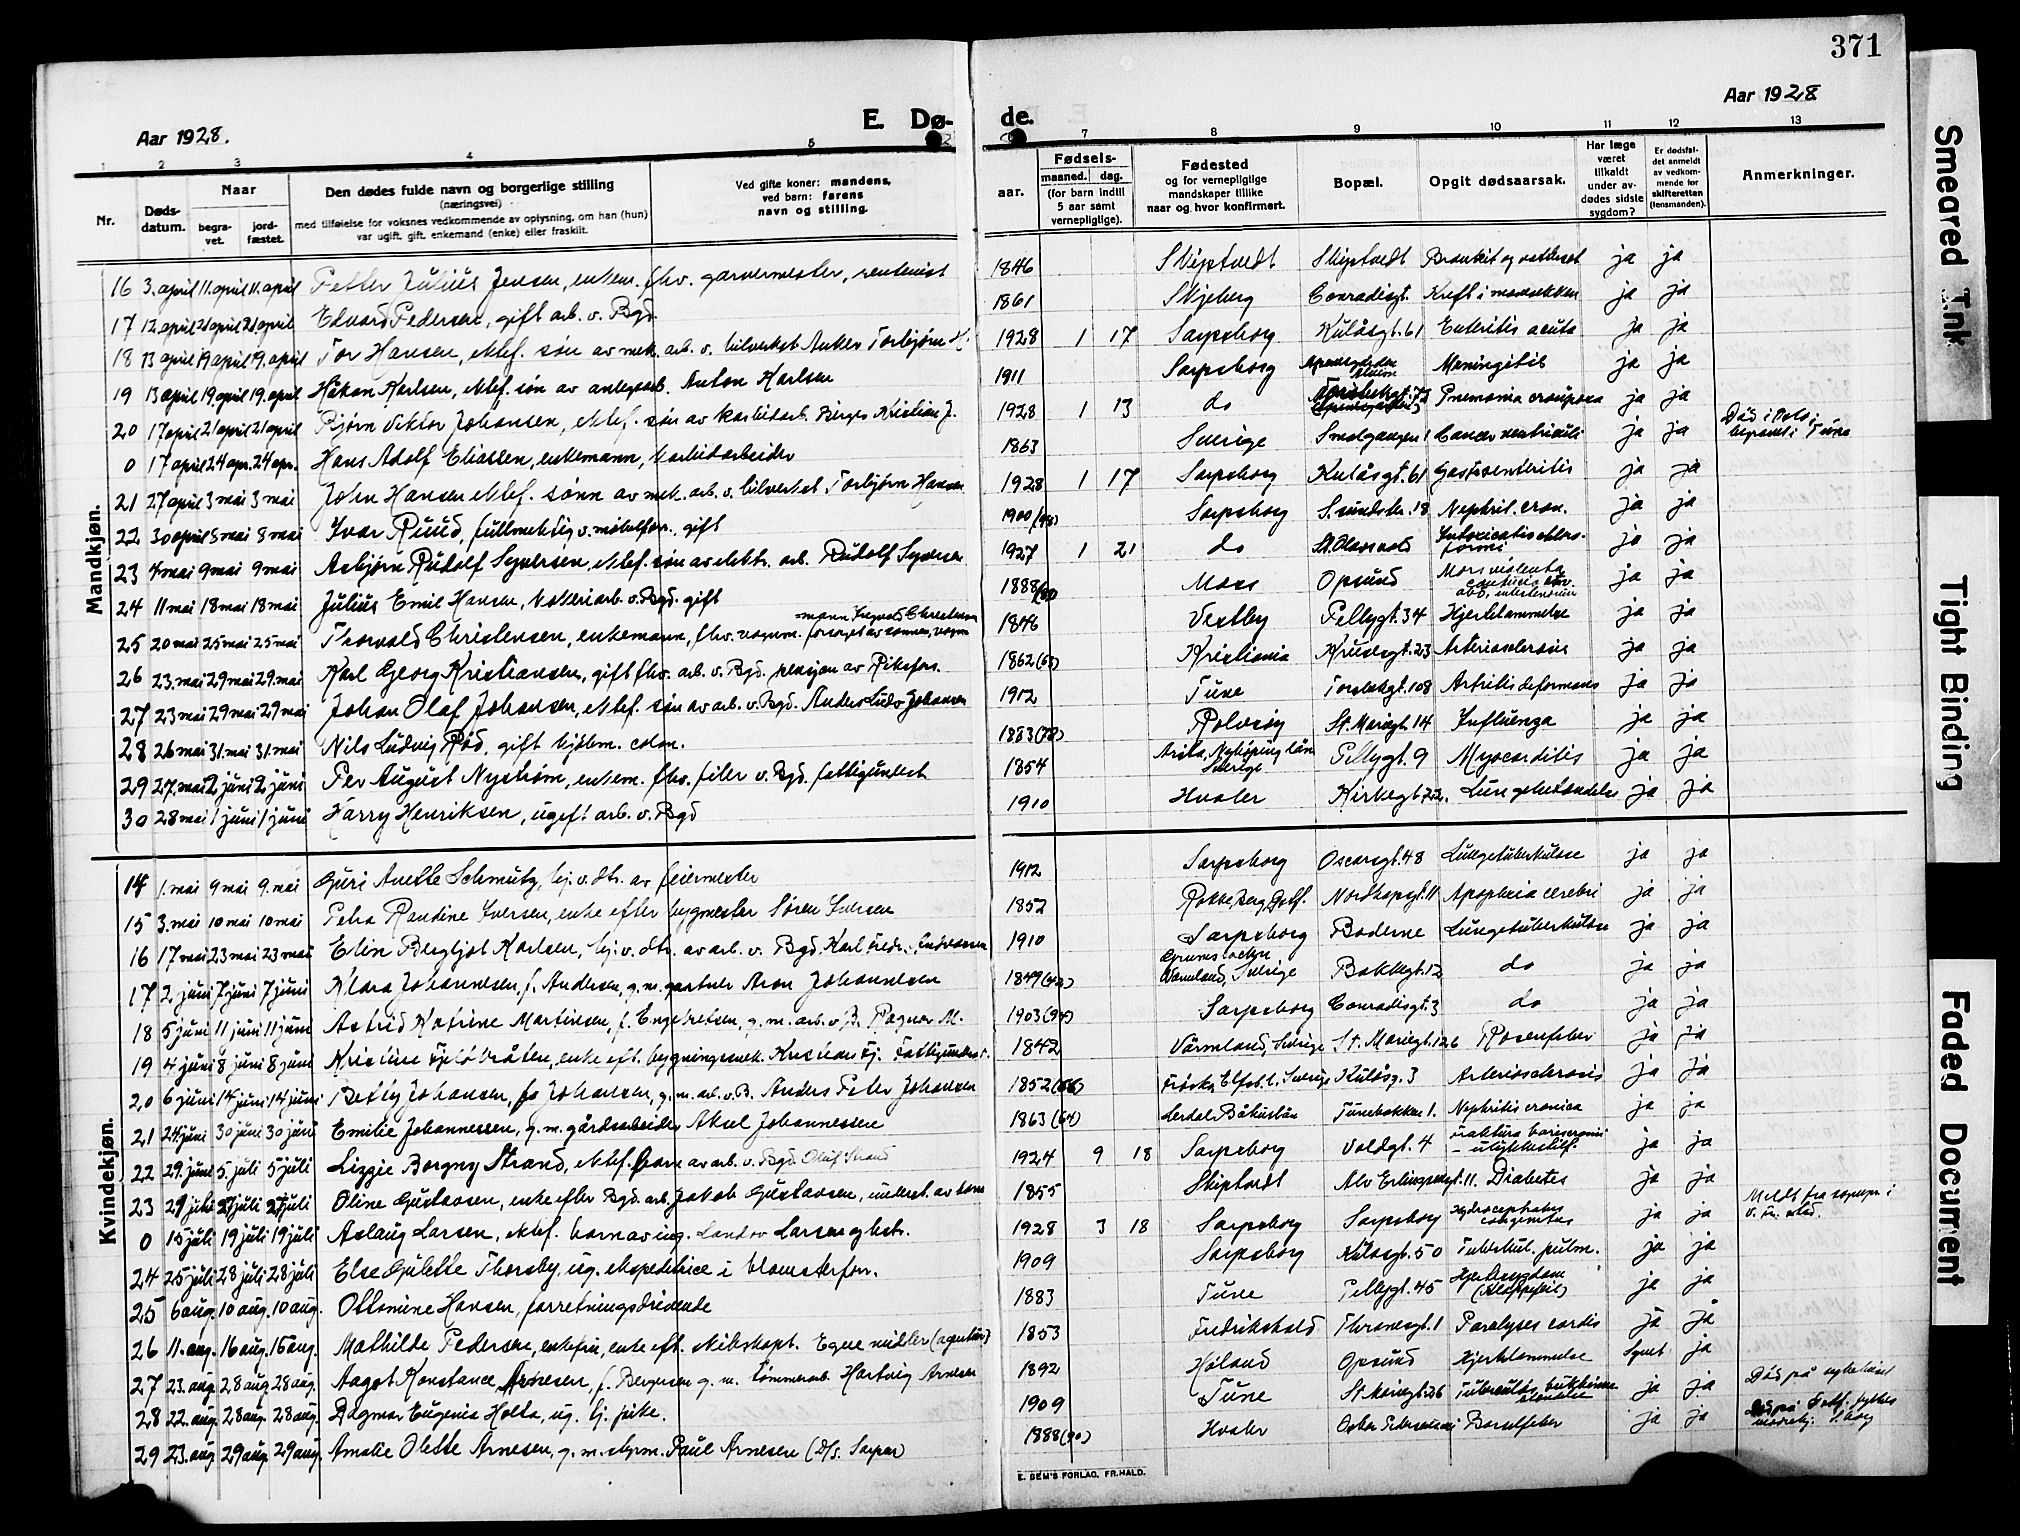 371
Aar 1928.
E. Dø-
de.
Aar 1928
1 2 3 4 5 7 8 9 10 11 12 13
Nr.
Døds-
datum.
Naar
begra-
vet.
jord-
fæstet.
Den dødes fulde navn og borgerlige stilling
(næringsvei)
med tilføielse for voksnes vedkommende av oplysning, om han (hun)
var ugift, gift, enkemand (enke) eller fraskilt.
Ved gifte koner: mandens,
ved barn: farens
navn og stilling.
aar.
Fødsels-
maaned. dag.
(for barn indtil
5 aar samt
vernepligtige).
Fødested
og for vernepligtige
mandskaper tillike
naar og hvor konfirmert.
Bopæl.
Opgit dødsaarsak.
Har læge
været
tilkaldt
under av-
dødes sidste
sygdom?
Er dødsfal-
det anmeldt
av vedkom-
mende for
skifteretten
(lensmanden).
Anmerkninger.
Mandkjøn.
16 3. april 11. april 11. april Petter Julius Jensen, enkem. fhv. garvermester, rentenist 1846 Skiptvedt Skiptvedt ja ja
17 12 april 21 april 21 april Edvard Pedersen, gift arb. v. Bgd. 1861 Skjeberg Conradisgt. Kreft i mavesekken ja ja
18 13 april 19 april 19. april Tor Hansen, ektef. søn av mek. arb. v. bilverkst. Anker Torbjørn H. 1928 1 17 Sarpsborg Kulåsgt. 61 Enteritis acuta ja ja
19 13 april 19 april 19. april Håkon Karlsen, ektef. søn av anlegsarb. Anton Karlsen 1911 Sarpsborg Meningitis ja ja
20 17 april 21 april 21 april Bjørn Viktor Johansen, ektef. søn av karbidarb. Birger Kristian J. 1928 1 13 do Pnemonia crouposa ja ja
0 17 april 24 apr. 24 apr. Hans Adolf Eliassen, enkemann, karbidarbeider 1863 Sverige Smalgangen 1 Cancer ventriculi ja ja Død i Oslo, begravet i Tune
21 27 april 3 mai 3 mai John Hansen ektef. sønn av mek. arb. v. bilverkst. Torbjørn Hansen 1928 1 17 Sarpsborg Kulåsgt. 61 Gastroenteritis ja ja
22 30 april 8 mai 8 mai Ivar Ruud, fullmektig v. møbelforr. gift 1900 Sarpsborg S. sundstr. 18 Nephrit. cron. ja ja
23 4 mai 9 mai 9 mai Asbjørn Rudolf Syversen, ektef. søn av elektr. arb. Rudolf Syversen 1927 1 21 do St. Olavsvold ja ja
24 11 mai 18 mai 18 mai Julius Emil Hansen, kokeriarb. v. Bgd. gift 1888 Moss Opsund Mors violenta ja ja
25 20 mai 25 mai 25 mai Thorvald Christensen, enkemann, fhv. vognm. forsørget av sønnen, vogn
mann Christensen 1846 Vestby Pellygt. 34 Hjertelammelse ja ja
26 23. mai 29 mai 29. mai Karl Georg Kristiansen, gift fhv. arb. v. Bgd. pensjon av Riksfors. 1862 Kristiania Kruusegt. 23 Arteriosclerosis ja ja
27 23 mai 29 mai 29 mai Johan Olaf Johansen, ektef. søn av arb. v. Bgd. Anders Ludv Johansen 1912 Tune Torsbekgt. 108 Artritis deformans ja ja
28 26 mai 31. mai 31. mai Nils Ludvig Rød, gift kjøbm. colon. 1883 Rolvsøy St. Mariegt. 14 Influenza ja ja
29 27. mai 2 juni 2 juni Per August Nystrøm, enkem. fhv. filer v. Bgd. fattigunderst 1854 Nykøping län Sverige Pellygt. 9 Myocarditis ja ja
30 28 mai 1 juni 1 juni Harry Henriksen, ugift arb. v. Bgd 1910 Hvaler Kirkegt. 22. Lungebetændelse ja ja
Kvindekjøn.
14 1. mai 9 mai 9. mai Guri Anette Schmutz, hj. v. dtr. av feiermester 1912 Sarpsborg Oscarsgt. 48 Lungetuberkulose ja ja
15 3. mai 10 mai 10 mai Petra Randine Iversen, enke efter bygmester Søren Iversen 1852 Rokke, Berg, Østf. Nordkapsgt. 11 Apoplexia cerebri ja ja
16 17 mai 23 mai 23 mai Elin Bergljot Karlsen, hj. v. dtr. av arb. v. Bgd. Karl Fredr. 1910 Sarpsborg Boderne Lungetuberkulose ja ja
17 2 juni 7 juni 7 juni Klara Johannesen, f. Andersen, g. m. gartner Aron Johannesen 1849 Värmland, Sverige Bakkegt. 12 do ja ja
18 5 juni 11 juni 11 juni Astrid Katrine Martinsen, f. Engebretsen, g. m. arb. v. B. Ragnar M. 1903 Sarpsborg Conradisgt. 3 do ja ja
19 4 juni 8 juni 8 juni Kristine Fjeldbråten, enke eft. bygningssnek. Kristian Fj. Fattigunderst. 1842 Värmland, Sverige St. Mariegt. 126 Rosenfeber ja ja
20 6 juni 14 juni 14 juni Betty Johansen, f. Johansen, g. m. arb. v. B. Anders Peter Johansen 1852 Elfsb. l., Sverige Kulåsg. 3 Arteriosclerosis ja ja
21 24. juni 30 juni 30 juni Emilie Johannessen, g. m. gårdsarbeider Aksel Johannessen 1863 (64) Båhuslän Tunebakken 1. Nephritis cronica ja ja
22 29. juni 5. juli 5 juli Lizzie Borgny Strand, ektef. barn av arb. v. Bgd. Oluf Strand 1924 9 18 Sarpsborg Voldgt. 4 ja ja
23 Oline Gustavsen, enke efter Bgd. arb. Jakob Gustavsen, underst. av barn 1855 Skiptvedt 11. Diabetes ja ja
0 15 juli 19 juli 19 juli Aslaug Larsen, ektef. barn av Larsen 1928 3 18 Sarpsborg Sarpsborg Hydrocephalus congenitus ja ja
24 25 juli 28 juli 28 juli Else Gulette Thorsby, ug. ekspeditrice i blomsterforr. 1909 Sarpsborg Kulåsgt. 50 Tuberkul. pulm. ja ja
25 6 aug. 10 aug. 10 aug. Ottomine Hansen, forretningsdrivende 1883 Tune Pellygt. 45 Hjertesygdom (Klappefeil) ja ja
26 11. aug. 16 aug. 16 aug. Mathilde Pedersen, enkefru, enke eft. skibskapt. Egne midler 1853 Fredrikshald Thranesgt. 1 Paralyses cordis ja ja
27 23. aug. 28 aug. 28 aug. Aagot Konstance Arnesen, f. Bergersen g. m. tømmerarb. Hartvig Arnesen 1892 Høland Opsund Hjertelammelse ja
28 22. aug. 28 aug. 28 aug. Dagmar Eugenia Holta, ug. hj. pike. 1909 Tune St. Mariegt. 26 ja ja Død på sykehuset
29 23. aug. 29 aug. 29 aug. Amalie Olette Arnesen, g. m. styrm. Paul Arnesen (D/s. Sarpen) 1888 Hvaler Barselfeber ja ja
E. SEM'S FORLAG, FR.HALD.
Smeared Ink
Tight Binding
Faded Document